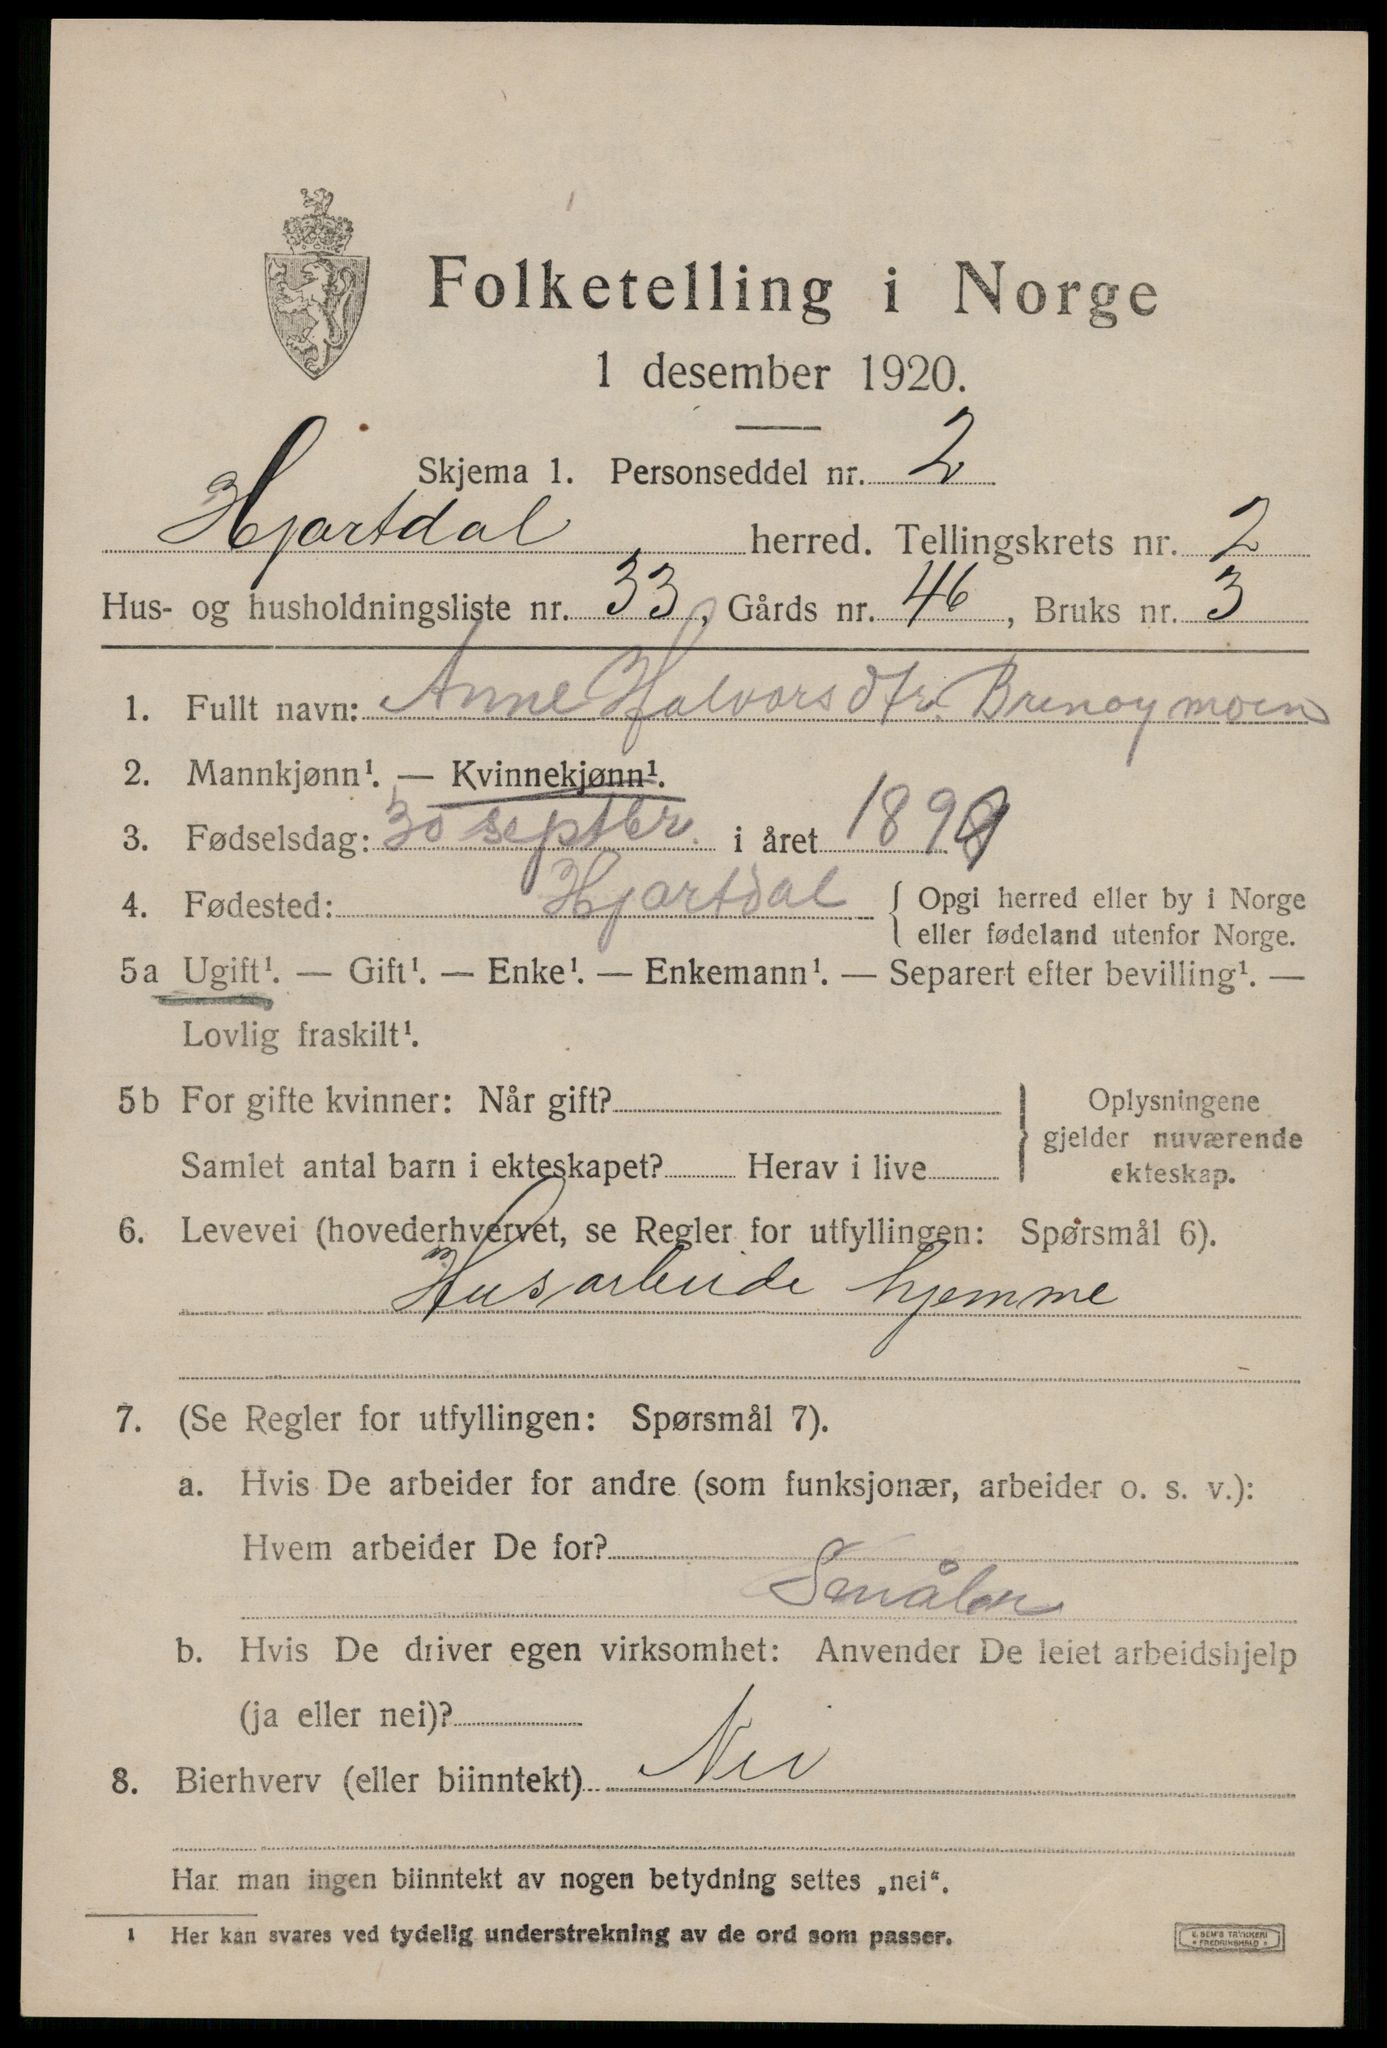 Folketelling i Norge
1 desember 1920.
Skjema 1. Personseddel nr. 2
Hjartdal herred. Tellingskrets nr. 2
Hus- og husholdningsliste nr. 33, Gårds nr. 46, Bruks nr. 3
1. Fullt navn: Anne Halvorsdtr.
2. Mannkjønn¹. — Kvinnekjønn¹.
3. Fødselsdag: 30 septbr. i året 1899
4. Fødested: Hjartdal { Opgi herred eller by i Norge
eller fødeland utenfor Norge.
5a Ugift¹. — Gift¹. — Enke¹. — Enkemann¹. — Separert efter bevilling¹. —
Lovlig fraskilt¹.
5b For gifte kvinner: Når gift? } Oplysningene
gjelder nuværende
Samlet antal barn i ekteskapet? Herav i live
ekteskap.
6. Levevei (hovederhvervet, se Regler for utfyllingen: Spørsmål 6).
Husarbeide hjemme
7. (Se Regler for utfyllingen: Spørsmål 7).
a. Hvis De arbeider for andre (som funksjonær, arbeider o. s. v.):
Hvem arbeider De for?
b. Hvis De driver egen virksomhet: Anvender De leiet arbeidshjelp
(ja eller nei)?
8. Bierhverv (eller biinntekt) Nei
Har man ingen biinntekt av nogen betydning settes „nei“.
¹ Her kan svares ved tydelig understrekning av de ord som passer.
E. SEM'S TRYKKERI
* FREDRIKSHALD *